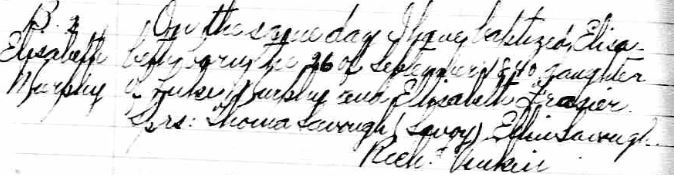 B. 2
Elisabeth
Murphy
On the same day I have baptized Elisa-
beth born the 26 of September 1840 daughter
of Luke Murphy and Elisabeth Frasier.
Sprs: Thoma Savough (Savoy) Ellin Savough.
Rich.d